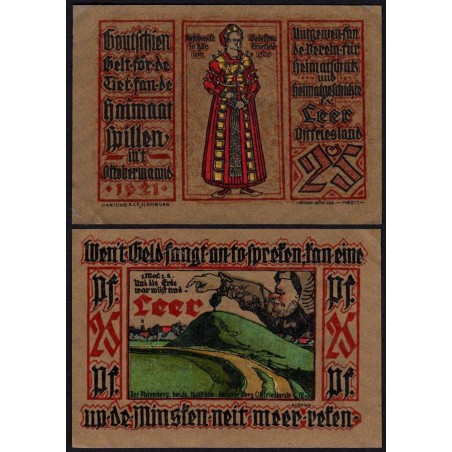 Goutschien
Gelt för de
Tiet fan de
Haimaat
spillen
in't
Oktobermaand
1921
Uutgewen fan
de Verein för
Heimatschutz
und
Heimatgeschichte
Leer
Ostfriesland
25
HARTUNG & CO, HAMBURG
Wen't Geld fangt an to spreken, kan eine
Pf.
25
Pf.
1. Mos. 1. 2.
Und die Erde
war wüst und
Leer
Pf.
25
Pf.
Der Plytenberg, bei
up de Minsken neit meer reken